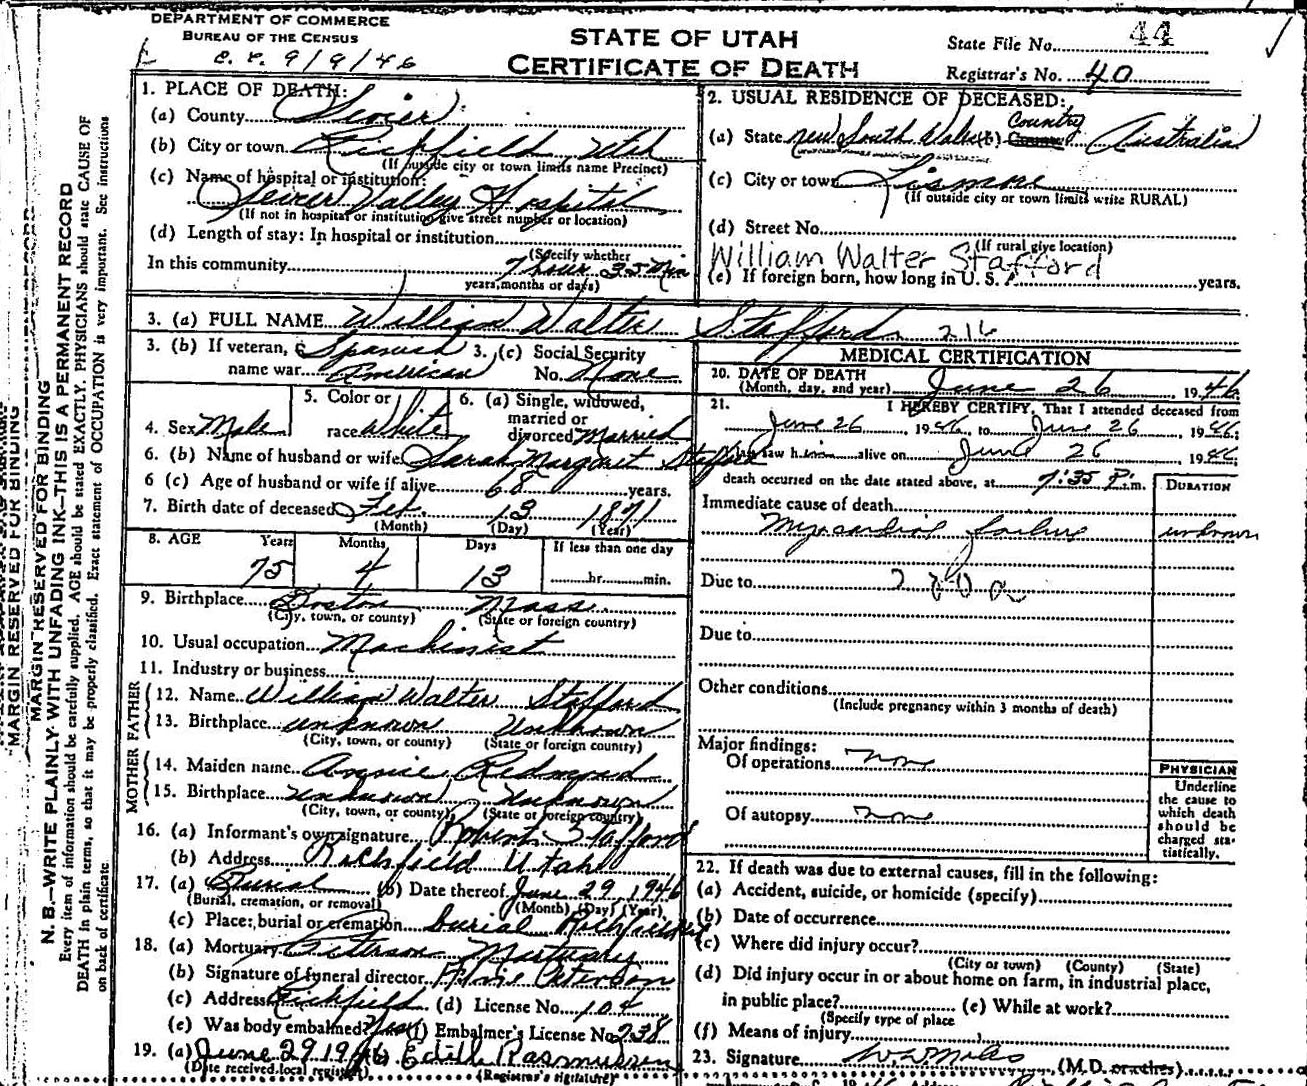 DEPARTMENT OF COMMERCE
BUREAU OF THE CENSUS
9/9/46
STATE OF UTAH
CERTIFICATE OF DEATH
State File No. 44
Registrar's No. 40
1. PLACE OF DEATH:
(a) County Sevier
(b) City or town Richfield Utah
(If outside city or town limits name Precinct)
(c) Name of hospital or institution:
Sevier Valley Hospital
(If not in hospital or institution give street number or location)
(d) Length of stay: In hospital or institution
(Specify whether
In this community 7 hour 35 Min
years, months or days)
2. USUAL RESIDENCE OF DECEASED:
(a) State New South Wales (b) County Country Australia
(c) City or town Lismore
(If outside city or town limits write RURAL)
(d) Street No.
(If rural give location)
William Walter Stafford
(e) If foreign born, how long in U. S. A. years.
3. (a) FULL NAME William Walter Stafford 216
3. (b) If veteran, name war Spanish American
3. (c) Social Security No. None
4. Sex Male
5. Color or race White
6. (a) Single, widowed, married or divorced Married
6. (b) Name of husband or wife Sarah Margaret Stafford
6 (c) Age of husband or wife if alive 68 years.
7. Birth date of deceased Feb. 13 1871
(Month) (Day) (Year)
8. AGE Years Months Days If less than one day
75 4 13 hr. min.
9. Birthplace Boston Mass.
(City, town, or county) (State or foreign country)
10. Usual occupation Machinist
11. Industry or business
FATHER
12. Name William Walter Stafford
13. Birthplace unknown Unknown
(City, town, or county) (State or foreign country)
MOTHER
14. Maiden name Annie Redmond
15. Birthplace Unknown Unknown
(City, town, or county) (State or foreign country)
16. (a) Informant's own signature Robert Stafford
(b) Address Richfield Utah
17. (a) Burial (b) Date thereof June 29, 1946
(Burial, cremation, or removal) (Month) (Day) (Year)
(c) Place: burial or cremation burial Richfield
18. (a) Mortuary Peterson Mortuary
(b) Signature of funeral director Peterson
(c) Address Richfield (d) License No. 104
(e) Was body embalmed? Yes (f) Embalmer's License No. 238
19. (a) June 29 1946 (b) Edith Rasmussen
(Date received local registrar) (Registrar's signature)
MEDICAL CERTIFICATION
20. DATE OF DEATH
(Month, day, and year) June 26 1946
21. I HEREBY CERTIFY, That I attended deceased from
June 26, 1946, to June 26 1946;
I last saw him alive on June 26 1946
death occurred on the date stated above, at 7:35 P.m.
DURATION
Immediate cause of death
Myocardial failure unknown
Due to
Due to
Other conditions
(Include pregnancy within 3 months of death)
Major findings:
Of operations none
Of autopsy none
PHYSICIAN
Underline
the cause to
which death
should be
charged sta-
tistically.
22. If death was due to external causes, fill in the following:
(a) Accident, suicide, or homicide (specify)
(b) Date of occurrence
(c) Where did injury occur?
(City or town) (County) (State)
(d) Did injury occur in or about home on farm, in industrial place,
in public place? (e) While at work?
(Specify type of place
(f) Means of injury
23. Signature W W Miles (M.D. or other)
MARGIN RESERVED FOR BINDING
MARGIN RESERVED FOR BINDING
N. B.—WRITE PLAINLY WITH UNFADING INK—THIS IS A PERMANENT RECORD
Every item of information should be carefully supplied. AGE should be stated EXACTLY. PHYSICIANS should state CAUSE OF
DEATH in plain terms, so that it may be properly classified. Exact statement of OCCUPATION is very important. See instructions
on back of certificate